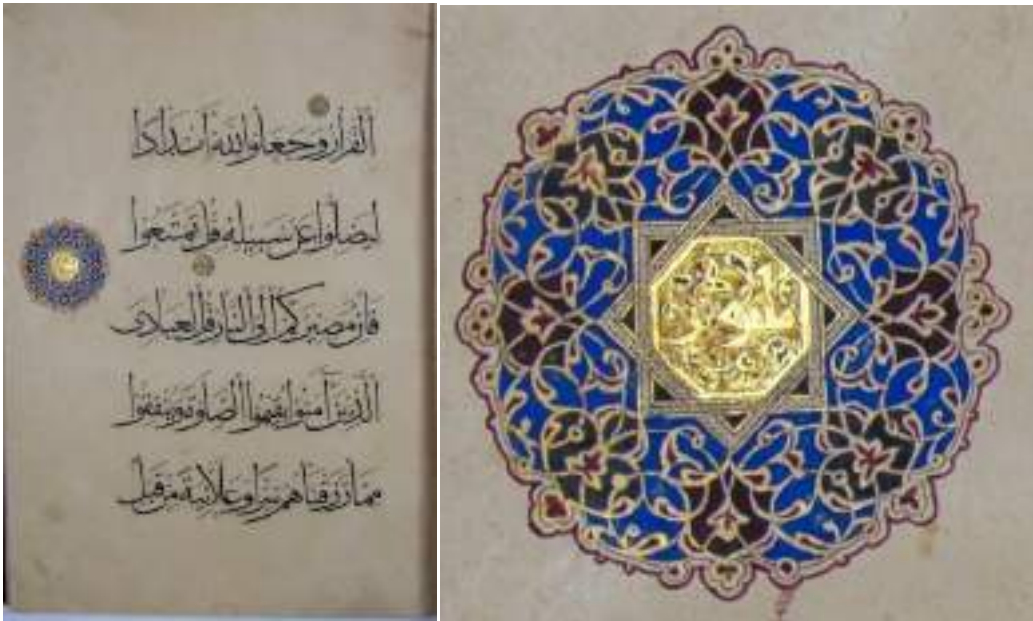 القرار وجعلوا لله أندادا
ليضلوا عن سبيله قل تمتعوا
فإن مصيركم إلى النار قل لعبادي
الذين آمنوا يقيموا الصلوة وينفقوا
مما رزقناهم سرا وعلانية من قبل